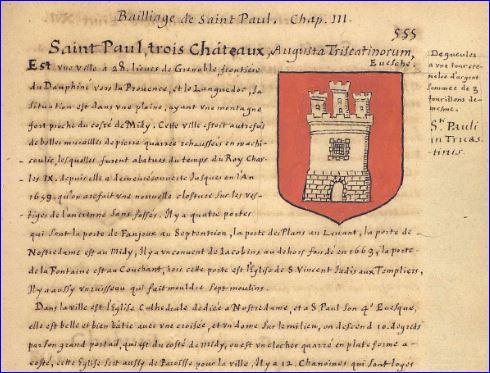 Bailliage de Saint Paul. Chap. III.
555
Saint Paul, trois Châteaux, Augusta Tricatinorum,
Euesché.
Est vne ville à 28. lieues de Grenoble frontiere
du Dauphiné vers la Prouence, et le Languedoc, sa
situation est dans vne plaine, ayant vne montagne
fort proche du costé de Midy. Cette ville estoit autrefois
de belles murailles de pierre quarrée rehaussées en machi-
-coulis, lesquelles furent abatues du temps du Roy Char-
les IX. depuis elle a demeuré ouuerte Jusques en l'an
1639. qu'on a refait vne nouuelle closture sur les ves-
tiges de l'ancienne sans fossés. Il y a quatre portes
qui sont la porte de Fanjoux au Septentrion, la porte des Plans au Leuant, la porte de
Nostredame est au Midy, Il y a vn couuent de Jacobins au dehors fondé en 1663, la porte
de la Fontaine est au Couchant, hors cette porte est l'Eglise de S. Vincent Jadis aux Templiers,
Il y a aussy vn ruisseau qui fait moudre sept moulins.
Dans la ville est l'Eglise Cathedrale dediée à Nostredame, et a S. Paul son 4.e Euesque,
elle est belle et bien bâtie auec vne croisée, et vn dome sur le milieu, on descend 10. degrés
par son grand portail, qui est du costé de midy, ou est vn clocher quarré en plate forme a
costé, cette Eglise sert aussy de Paroisse pour la ville, Il y a 12. Chanoines qui sont logés
De gueules
a vne tour cre-
nelée d'argent
sommée de 3
tourillons de
mesme.
S.ti Pauli
in Tricas-
tinis.